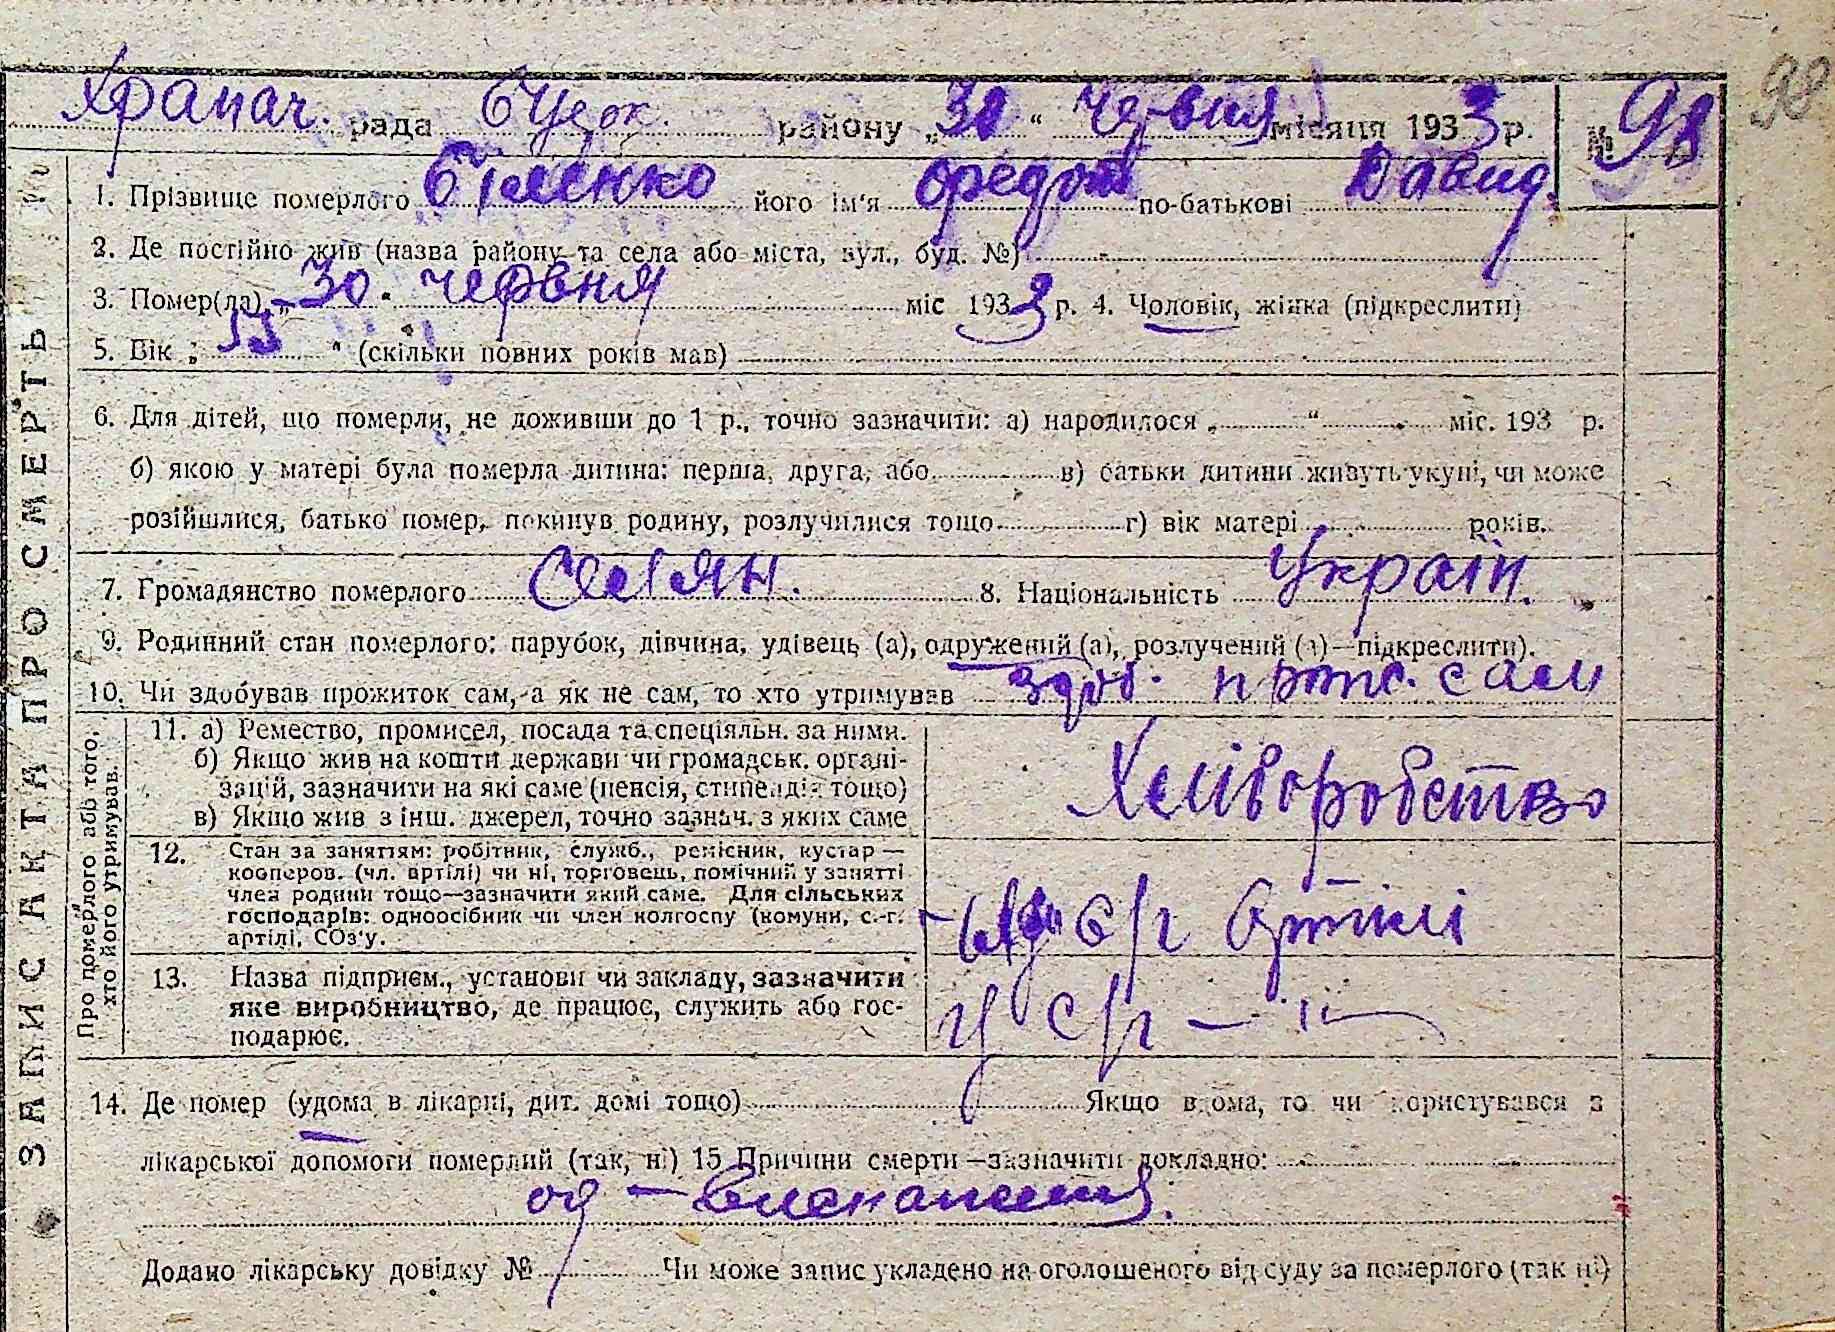 98
Храпач. рада Буцьк. району „30“ Червня місяця 1933 р. № 98
ЗАПИС АКТА ПРО СМЕРТЬ №
1. Прізвище померлого Біленко його ім'я Федот по-батькові Давид.
2. Де постійно жив (назва району та села або міста, вул., буд. №)
3. Помер(ла) „30“ червня міс 1933 р. 4. Чоловік, жінка (підкреслити)
5. Вік „53“ (скільки повних років мав)
6. Для дітей, що померли, не доживши до 1 р., точно зазначити: а) народилося „ “ міс. 193 р.
б) якою у матері була померла дитина: перша, друга, або в) батьки дитини живуть укупі, чи може
розійшлися, батько помер, покинув родину, розлучилися тощо г) вік матері років.
7. Громадянство померлого Селян. 8. Національність Україн.
9. Родинний стан померлого: парубок, дівчина, удівець (а), одружений (а), розлучений (а)—підкреслити).
10. Чи здобував прожиток сам, а як не сам, то хто утримував здоб. прож. сам
Про померлого або того, хто його утримував.
11. а) Ремество, промисел, посада та спеціяльн. за ними.
б) Якщо жив на кошти держави чи громадськ. органі-
зацій, зазначити на які саме (пенсія, стипендія тощо)
в) Якщо жив з інш. джерел, точно зазнач. з яких саме
Хліборобство
12. Стан за заняттям: робітник, служб., ремісник, кустар —
кооперов. (чл. артілі) чи ні, торговець, помічний у занятті
член родини тощо—зазначити який саме. Для сільських
господарів: одноосібник чи член колгоспу (комуни, с.-г.
артілі, СОз'у.
с/г Артілі
13. Назва підприєм., установи чи закладу, зазначити
яке виробництво, де працює, служить або гос-
подарює.
У с/г — "—
14. Де помер (удома в лікарні, дит. домі тощо) Якщо вдома, то чи користувався з
лікарської допомоги померлий (так, ні) 15 Причини смерти—зазначити докладно:
од — виснаження.
Додано лікарську довідку № Чи може запис укладено на оголошеного від суду за померлого (так ні)